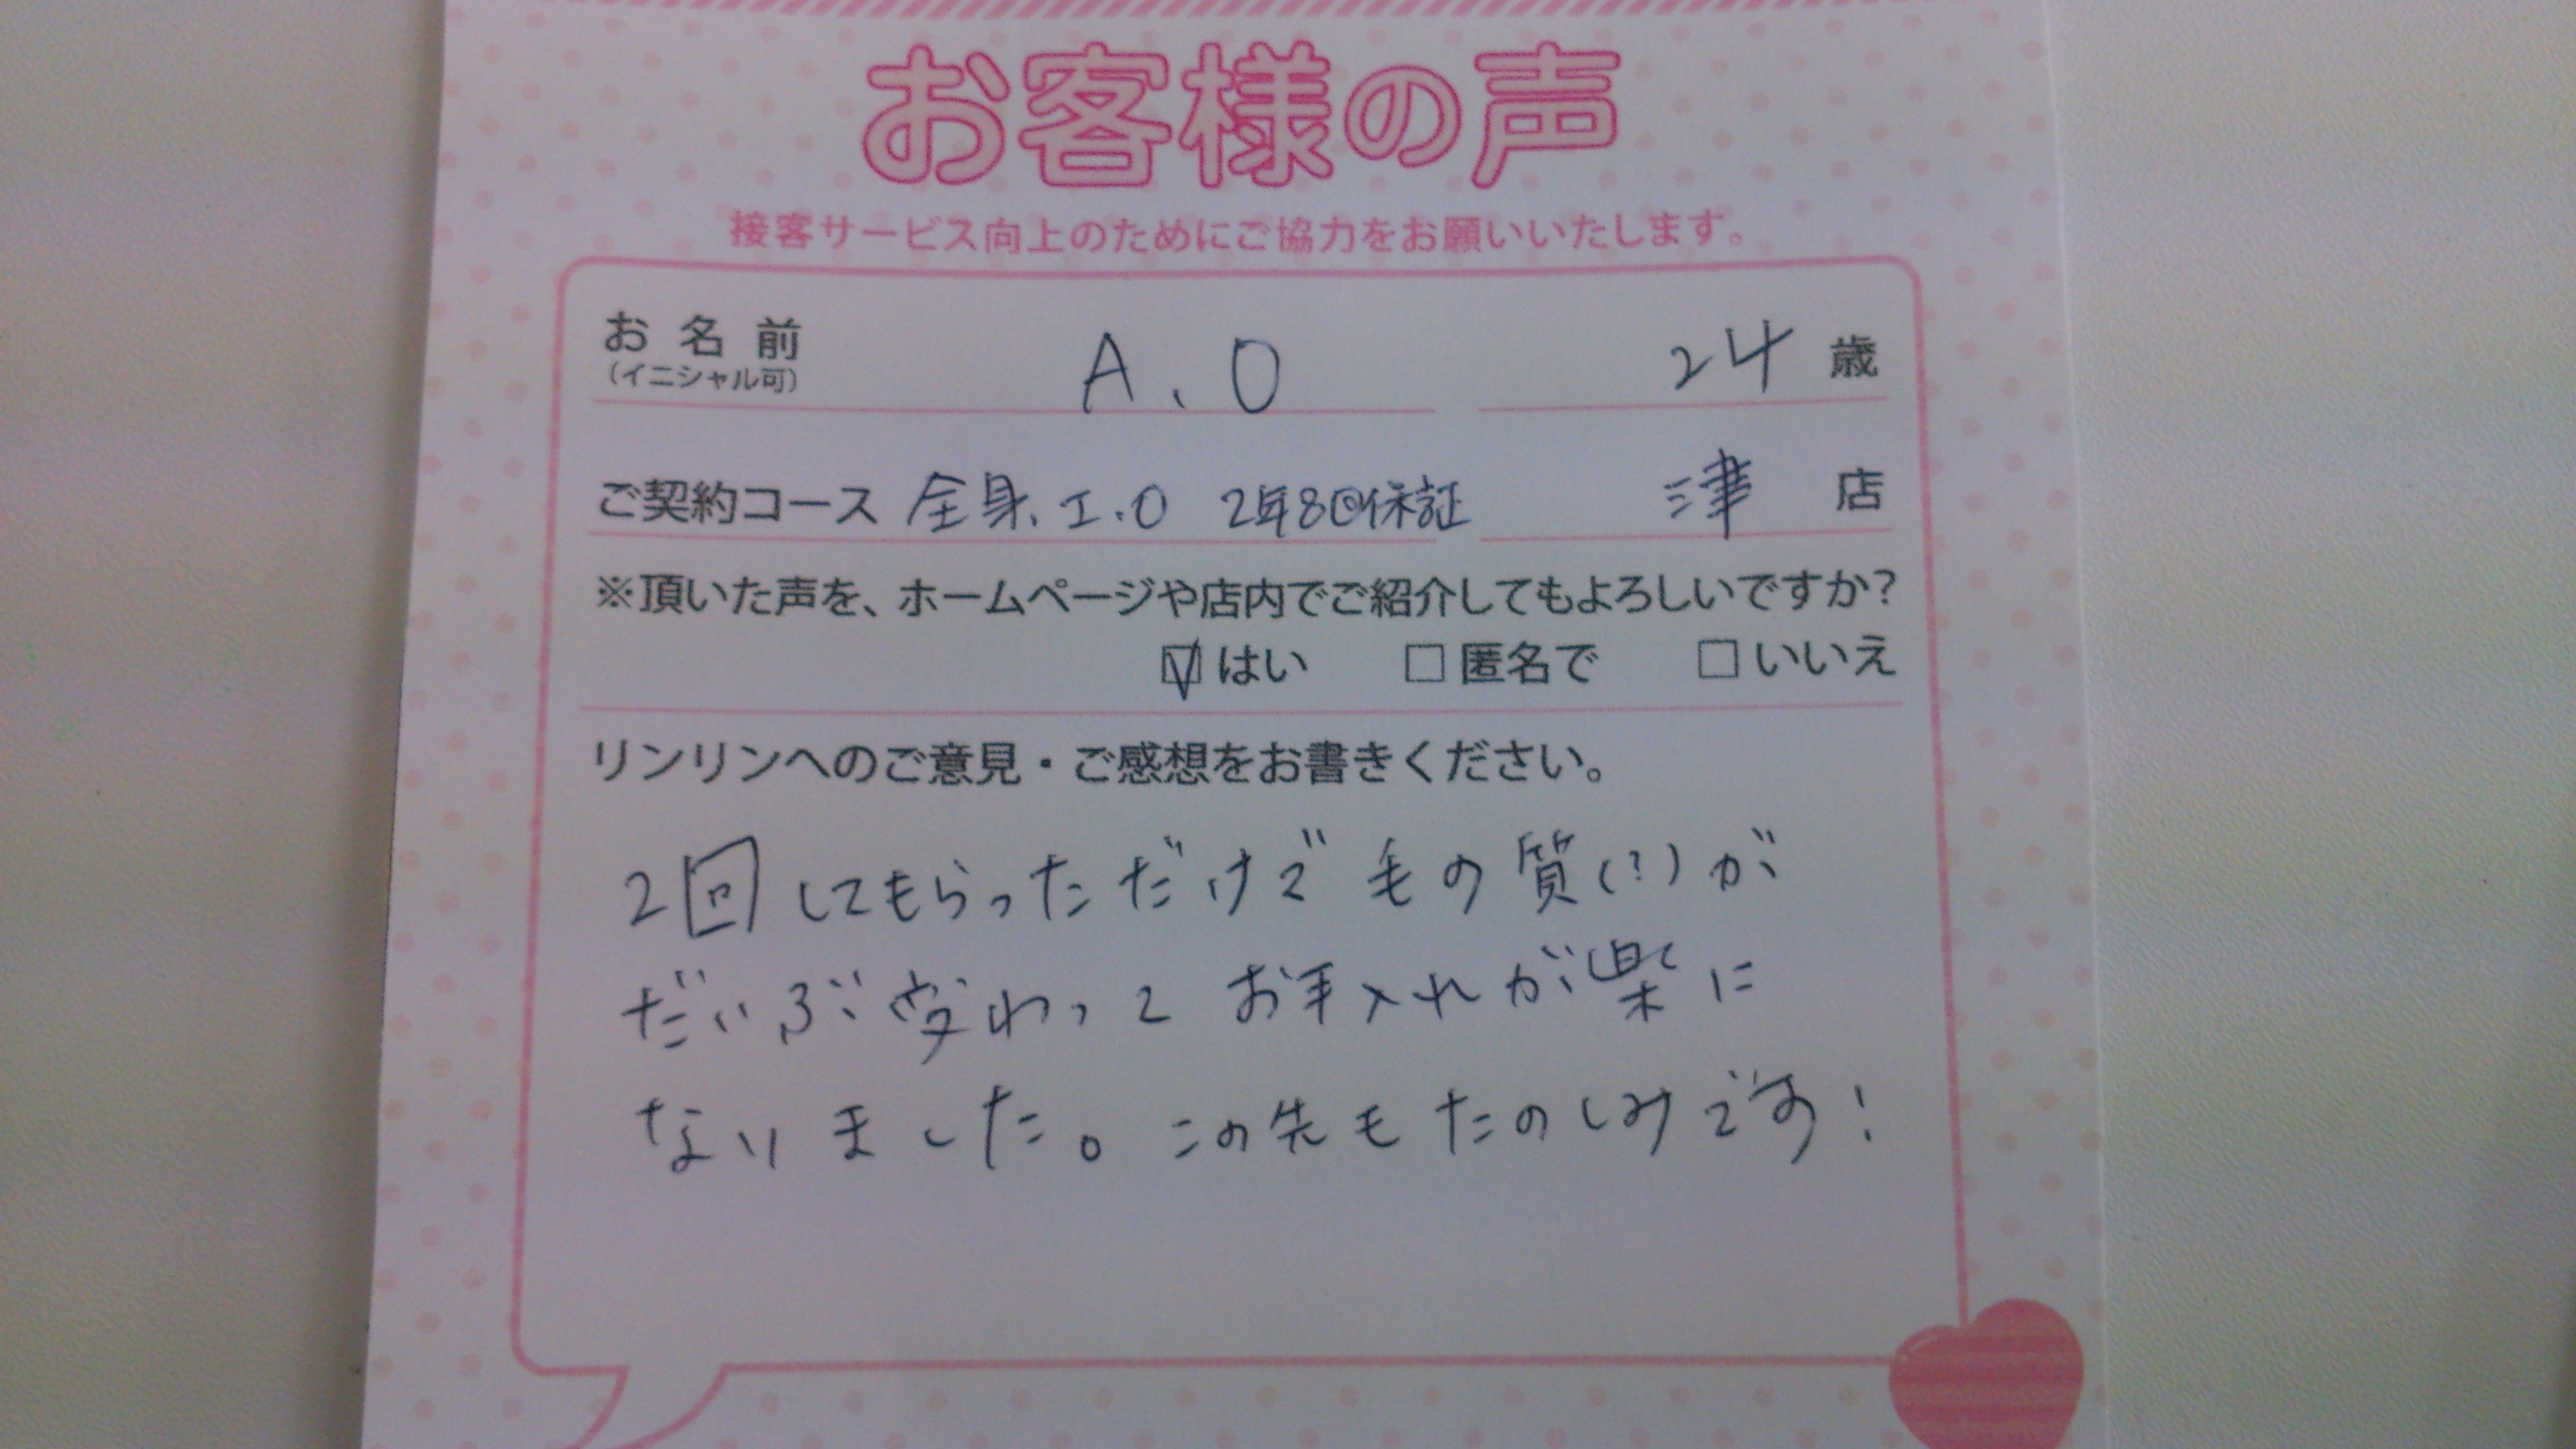 お客様の声
接客サービス向上のためにご協力をお願いいたします。
お名前 A.O 24 歳
(イニシャル可)
ご契約コース 全身、I.O 2年8回保証 津 店
※頂いた声を、ホームページや店内でご紹介してもよろしいですか?
☑はい □匿名で □いいえ
リンリンへのご意見・ご感想をお書きください。
2回してもらっただけで毛の質(?)が
だいぶ変わってお手入れが楽に
なりました。この先もたのしみです!